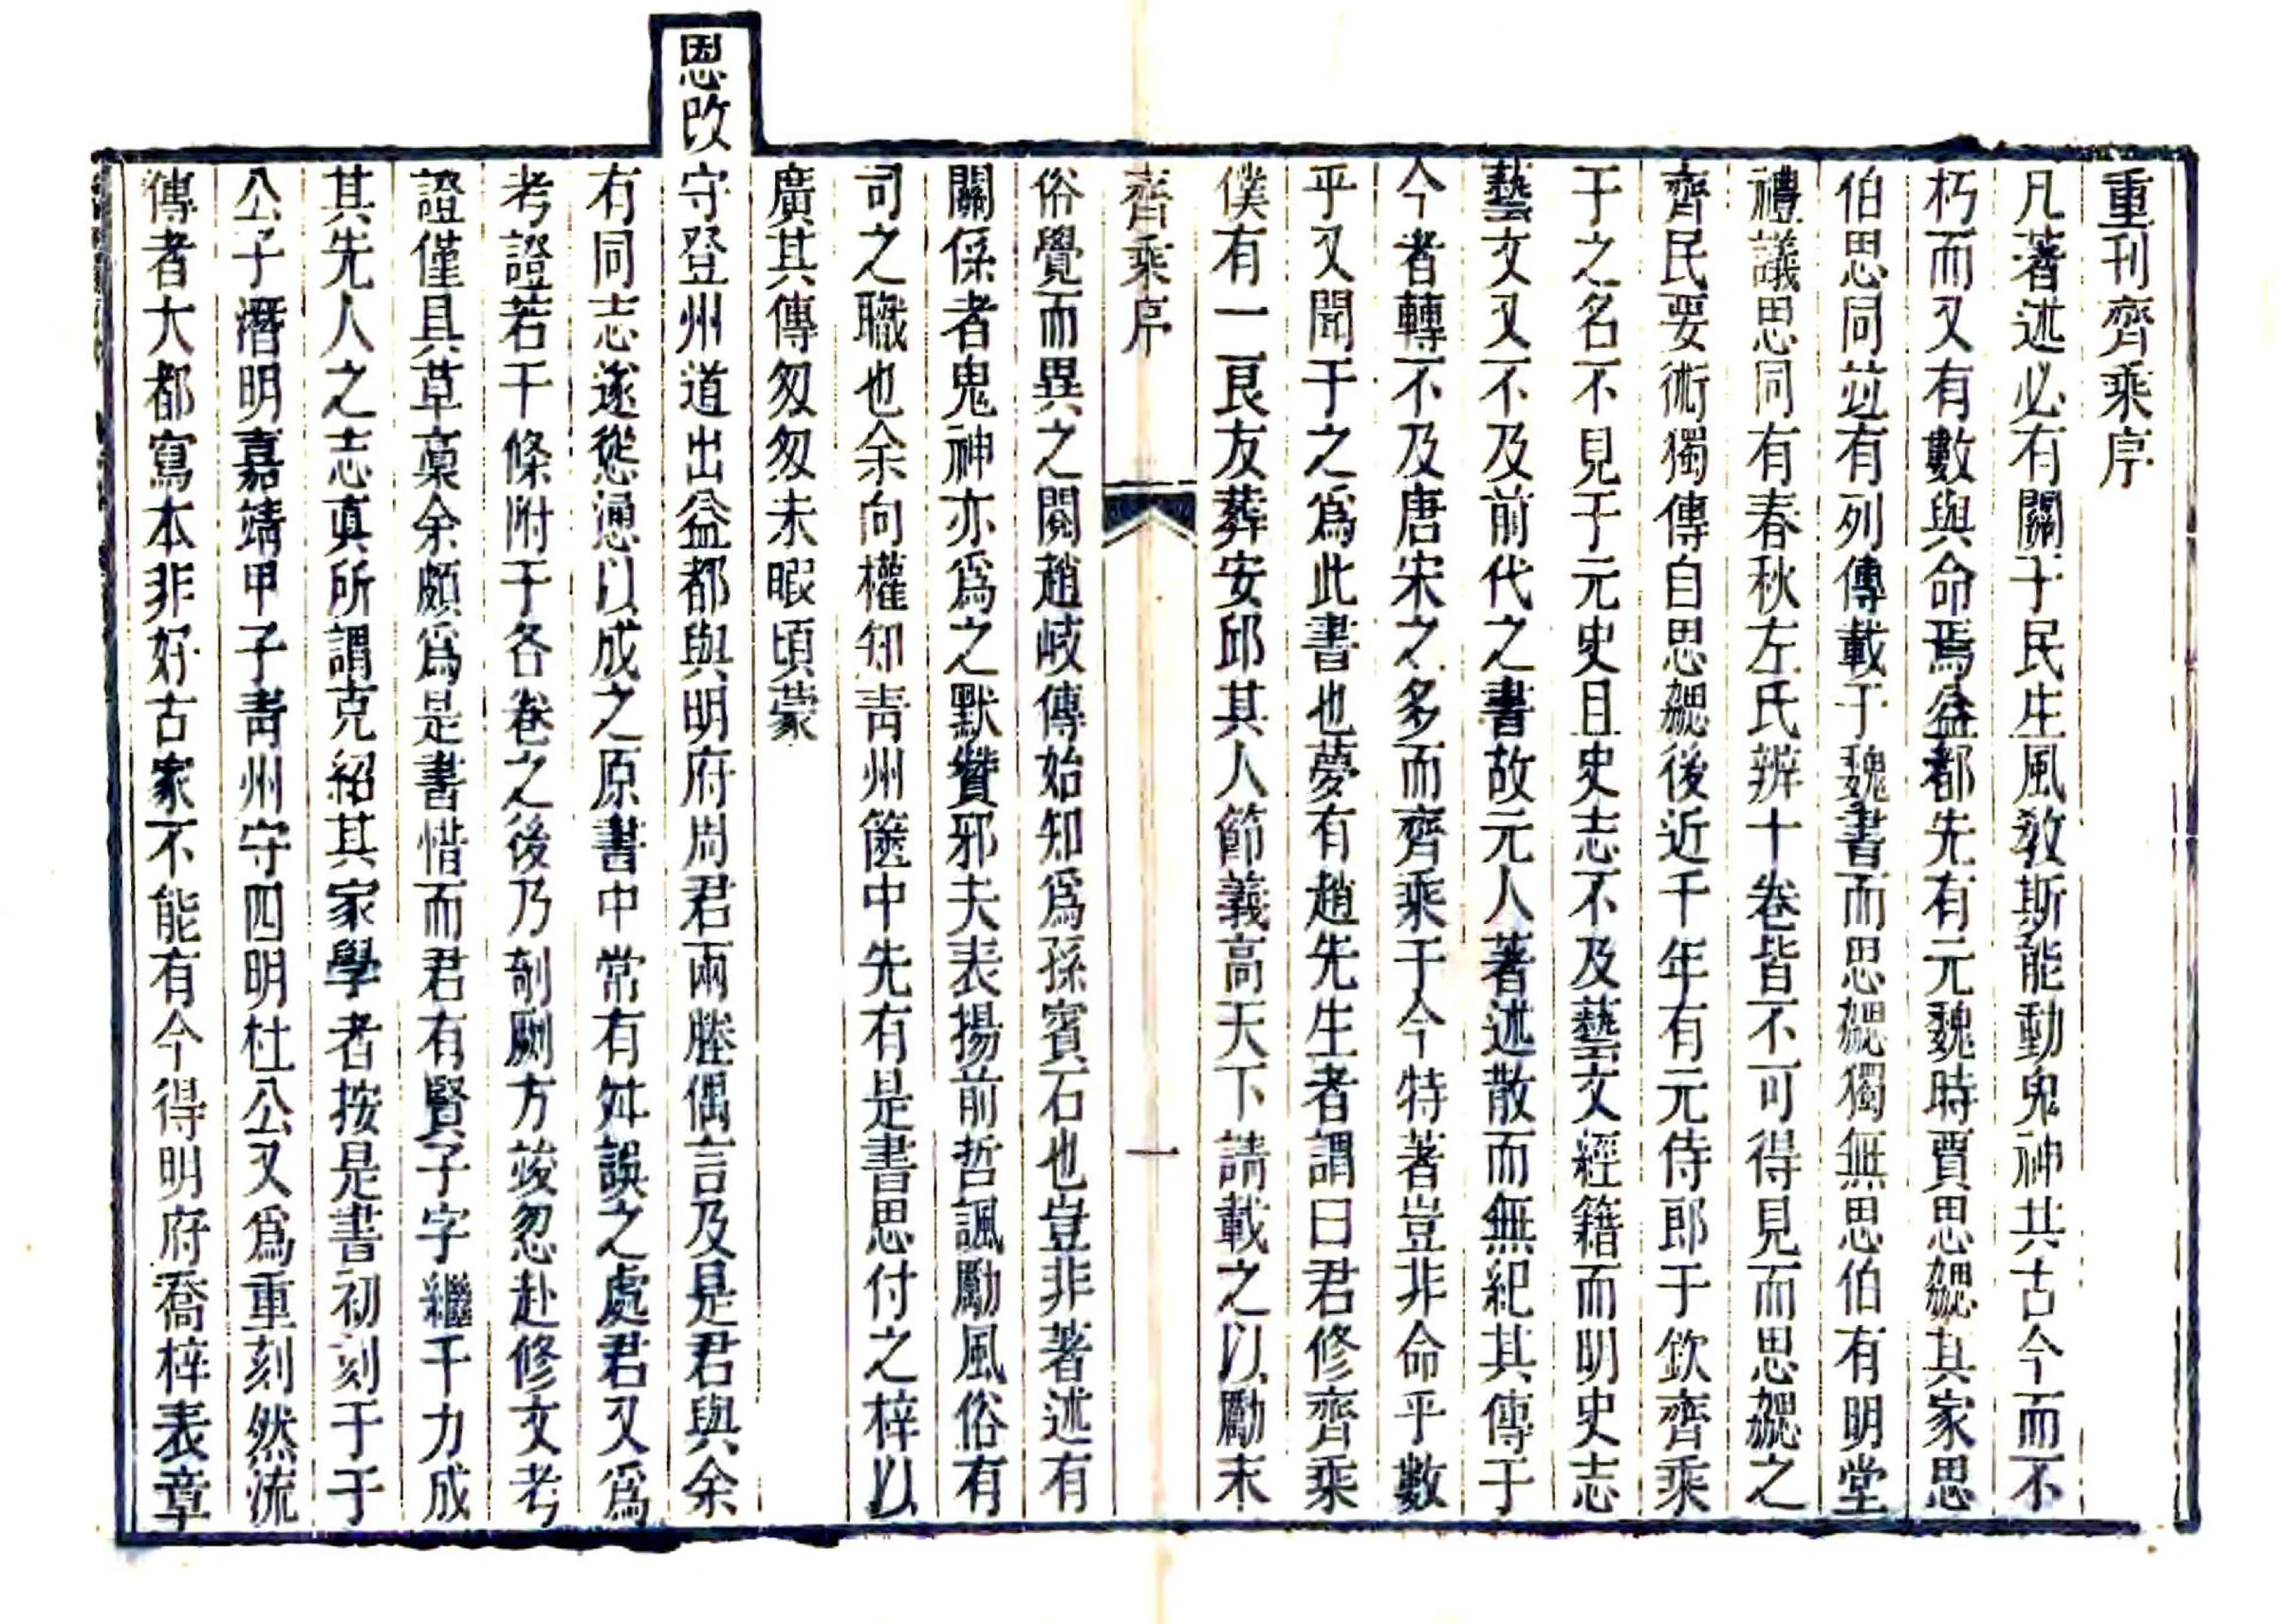 重刊齊乘序
凡著述必有關于民生風敎斯能動鬼神共古今而不
朽而又有數與命焉益都先有元魏時賈思勰其家思
伯思同竝有列傳載于魏書而思勰獨無思伯有明堂
禮議思同有春秋左氏辨十卷皆不可得見而思勰之
齊民要術獨傳自思勰後近千年有元侍郎于欽齊乘
于之名不見于元史且史志不及藝文經籍而明史志
藝文又不及前代之書故元人著述散而無紀其傳于
今者轉不及唐宋之多而齊乘于今特著豈非命乎數
乎又聞于之爲此書也夢有趙先生者謂曰君修齊乘
僕有一良友葬安邱其人節義高天下請載之以勵末
齊乘序
一
俗覺而異之閱趙岐傳始知爲孫賓石也豈非著述有
關係者鬼神亦爲之默贊邪夫表揚前哲諷勵風俗有
司之職也余向權知青州篋中先有是書思付之梓以
廣其傳匆匆未暇頃蒙
恩改守登州道出益都與明府周君兩塍偶言及是君與余
有同志遂慫慂以成之原書中常有舛誤之處君又爲
考證若干條附于各卷之後乃剞劂方竣忽赴修文考
證僅具草稾余頗爲是書惜而君有賢子字繼千力成
其先人之志真所謂克紹其家學者按是書初刻于于
公子潛明嘉靖甲子青州守四明杜公又爲重刻然流
傳者大都寫本非好古家不能有今得明府喬梓表章